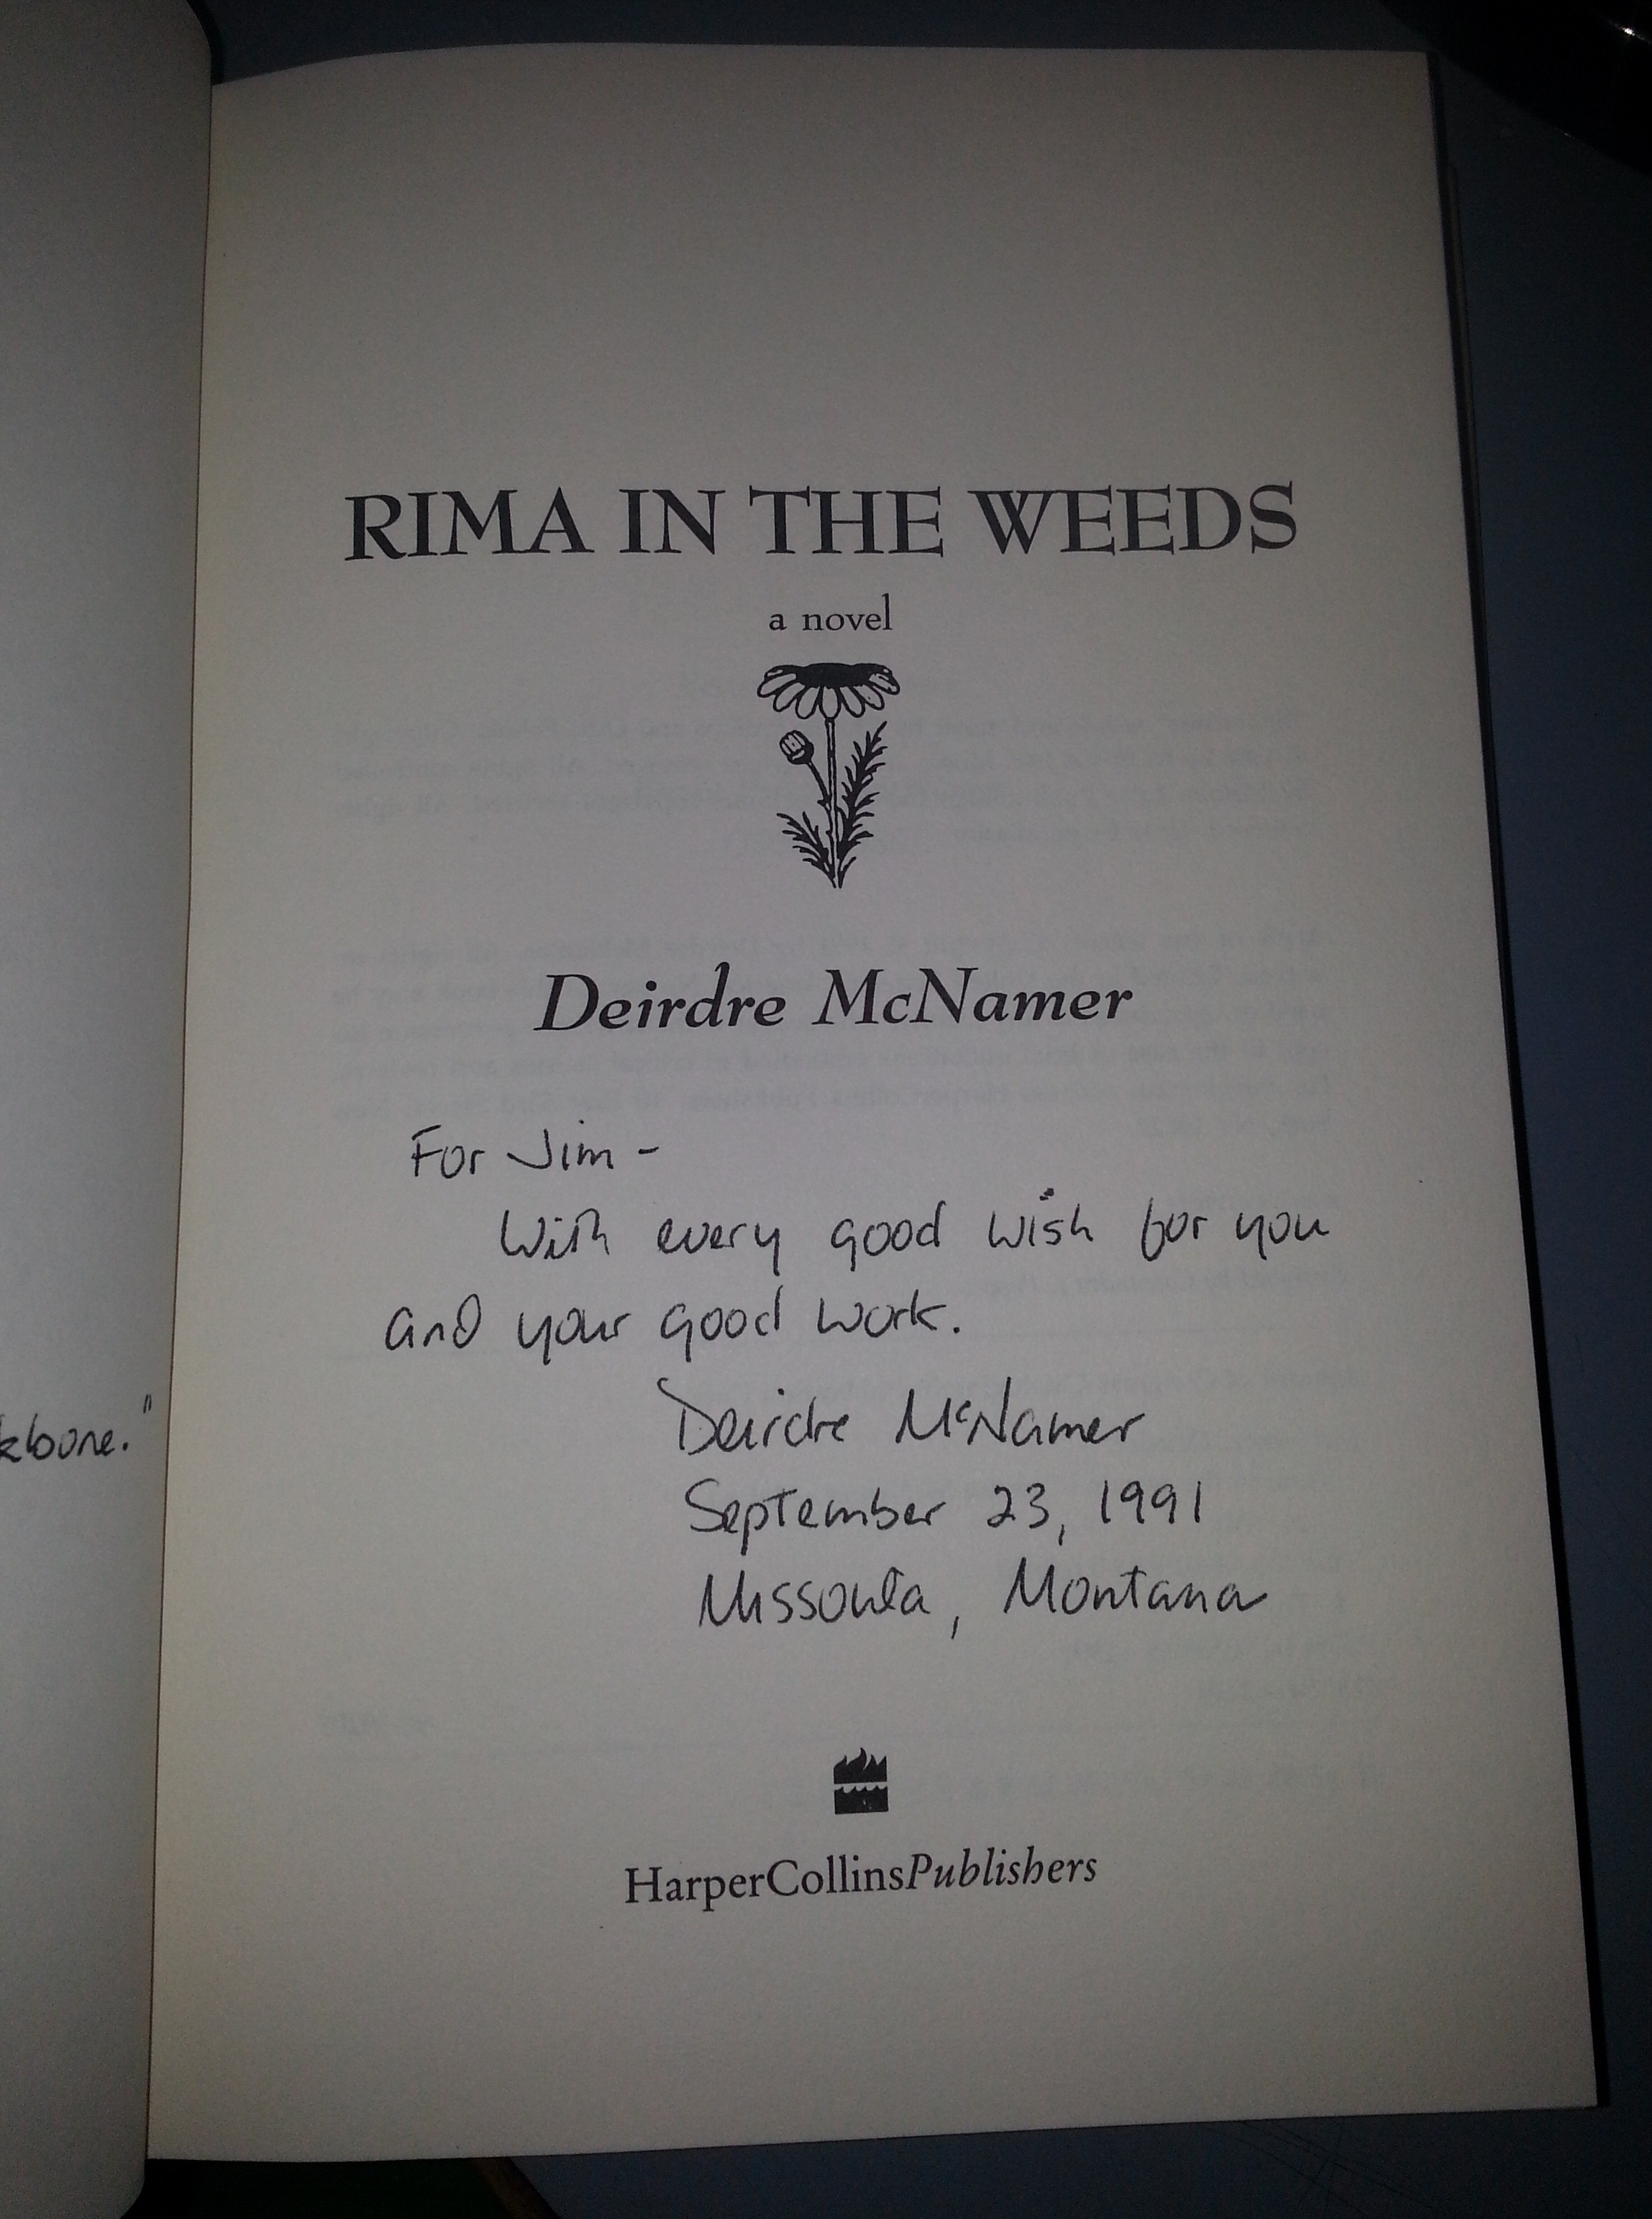 RIMA IN THE WEEDS
a novel
Deirdre McNamer
For Jim -
With every good wish for you
and your good work.
Deirdre McNamer
September 23, 1991
Missoula, Montana
HarperCollinsPublishers
kbone."